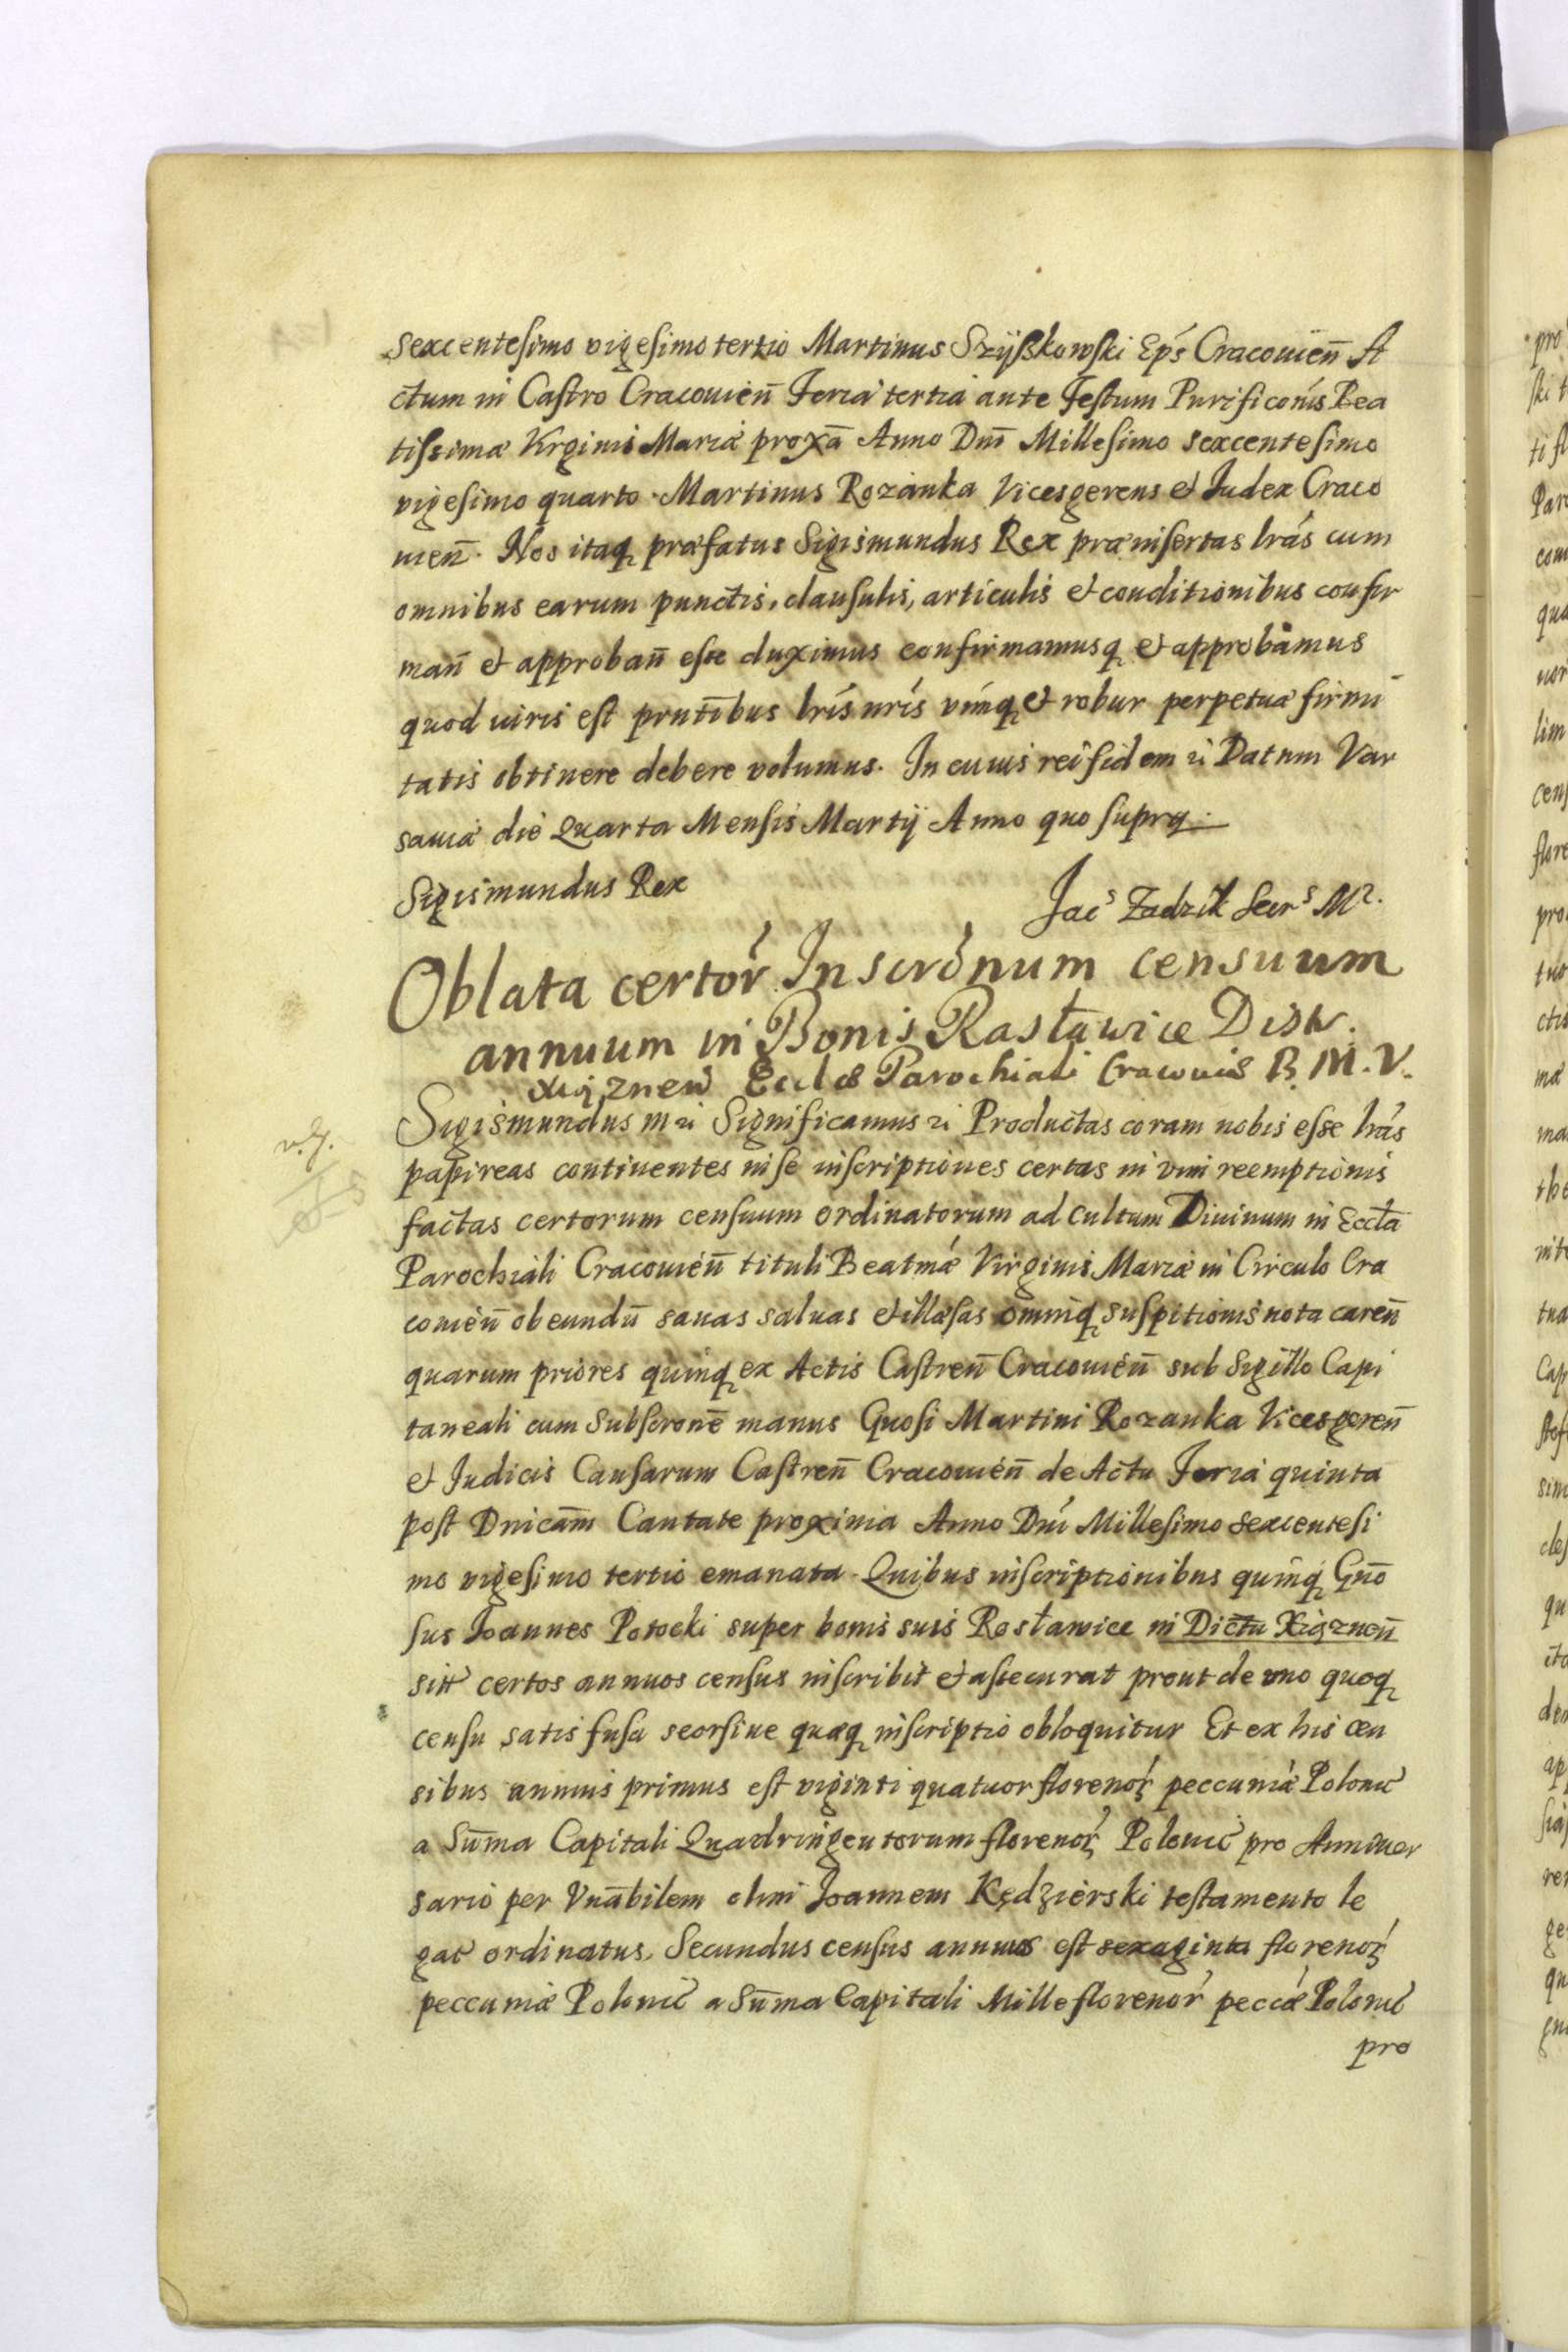 sexcentesimo vigesimo tertio Martinus Szÿßkowski Epś Cracouień A
ctum in Castro Cracouień Feria tertia ante Festum Purificońis Bea
tissimæ Virginis Mariæ proxa̅ Anno Dni̅ Millesimo sexcentesimo
vigesimo quarto. Martinus Rozanka Vicesgerens et Iudex Craco
uien̅. Nos itaq præfatus Sigismundus Rex præinsertas lrás cum
omnibus earum punctis, clausulis, articulis et conditionibus confir
man̅ et approban̅ esse duximus confirmamusq et approbamus
quod iuris est pnti̅bus lrís nrís vimq et robur perpetuæ firmi
tatis obtinere debere volumus. In cuius rei fidem ꝛi Datum Var
sauiæ die Quarta Mensis Martÿ Anno quo supra.
Sigismundus Rex
Jacs Zadzik Secrs Mr.
Oblata certor̓ Inscro̓num censuum
annuum in Bonis Rasławice Distr.
Xiąznen̅ Eccles Parochiali Cracouis B. M. V.
v. g.
Sigismundus m ꝛi Significamus ꝛi Productas coram nobis esse lrás
papireas continentes in se inscriptiones certas in vim reemptionis
factas certorum censuum ordinatorum ad cultum Diuinum in Eccła
Parochiali Cracouien̅ tituli Beatmæ Virginis Mariæ in Circulo Cra
couien̅ obeundu̅ sanas saluas et illæsas omniq suspitionis nota caren̅
quarum priores quinq ex Actis Castren̅ Cracouien̅ sub Sigillo Capi
taneali cum Subscrone̅ manus Gnosi Martini Rozanka Vicesgeren̅
et Iudicis Causarum Castren̅ Cracouien̅ de Actu Feria quinta
post Dnica̅m Cantate proxima Anno Dni̓ Millesimo sexcentesi
mo vigesimo tertio emanata. Quibus inscriptionibus quinq Gno̅
sus Joannes Potocki super bonis suis Rosławice in Dictu̅ Xiązneu̅
sitt certos annuos census inscribit et assecurat prout de vno quoq
censu satis fusa seorsiue quæq inscriptio obloquitur Et ex his cen
sibus annuis primus est viginti quatuor florenoꝝ peccuniæ Polonic
a Su̅ma Capitali Quadringentorum florenoꝝ Polonic pro Anniuer
sario per Vna̅bilem olim Joannem Kędzierski testamento le
gat ordinatus. Secundus census annuus est sexaginta florenoꝝ
peccuniæ Polonic a Su̅ma Capitali Mille florenor̓ peccæ̓ Polonic
pro